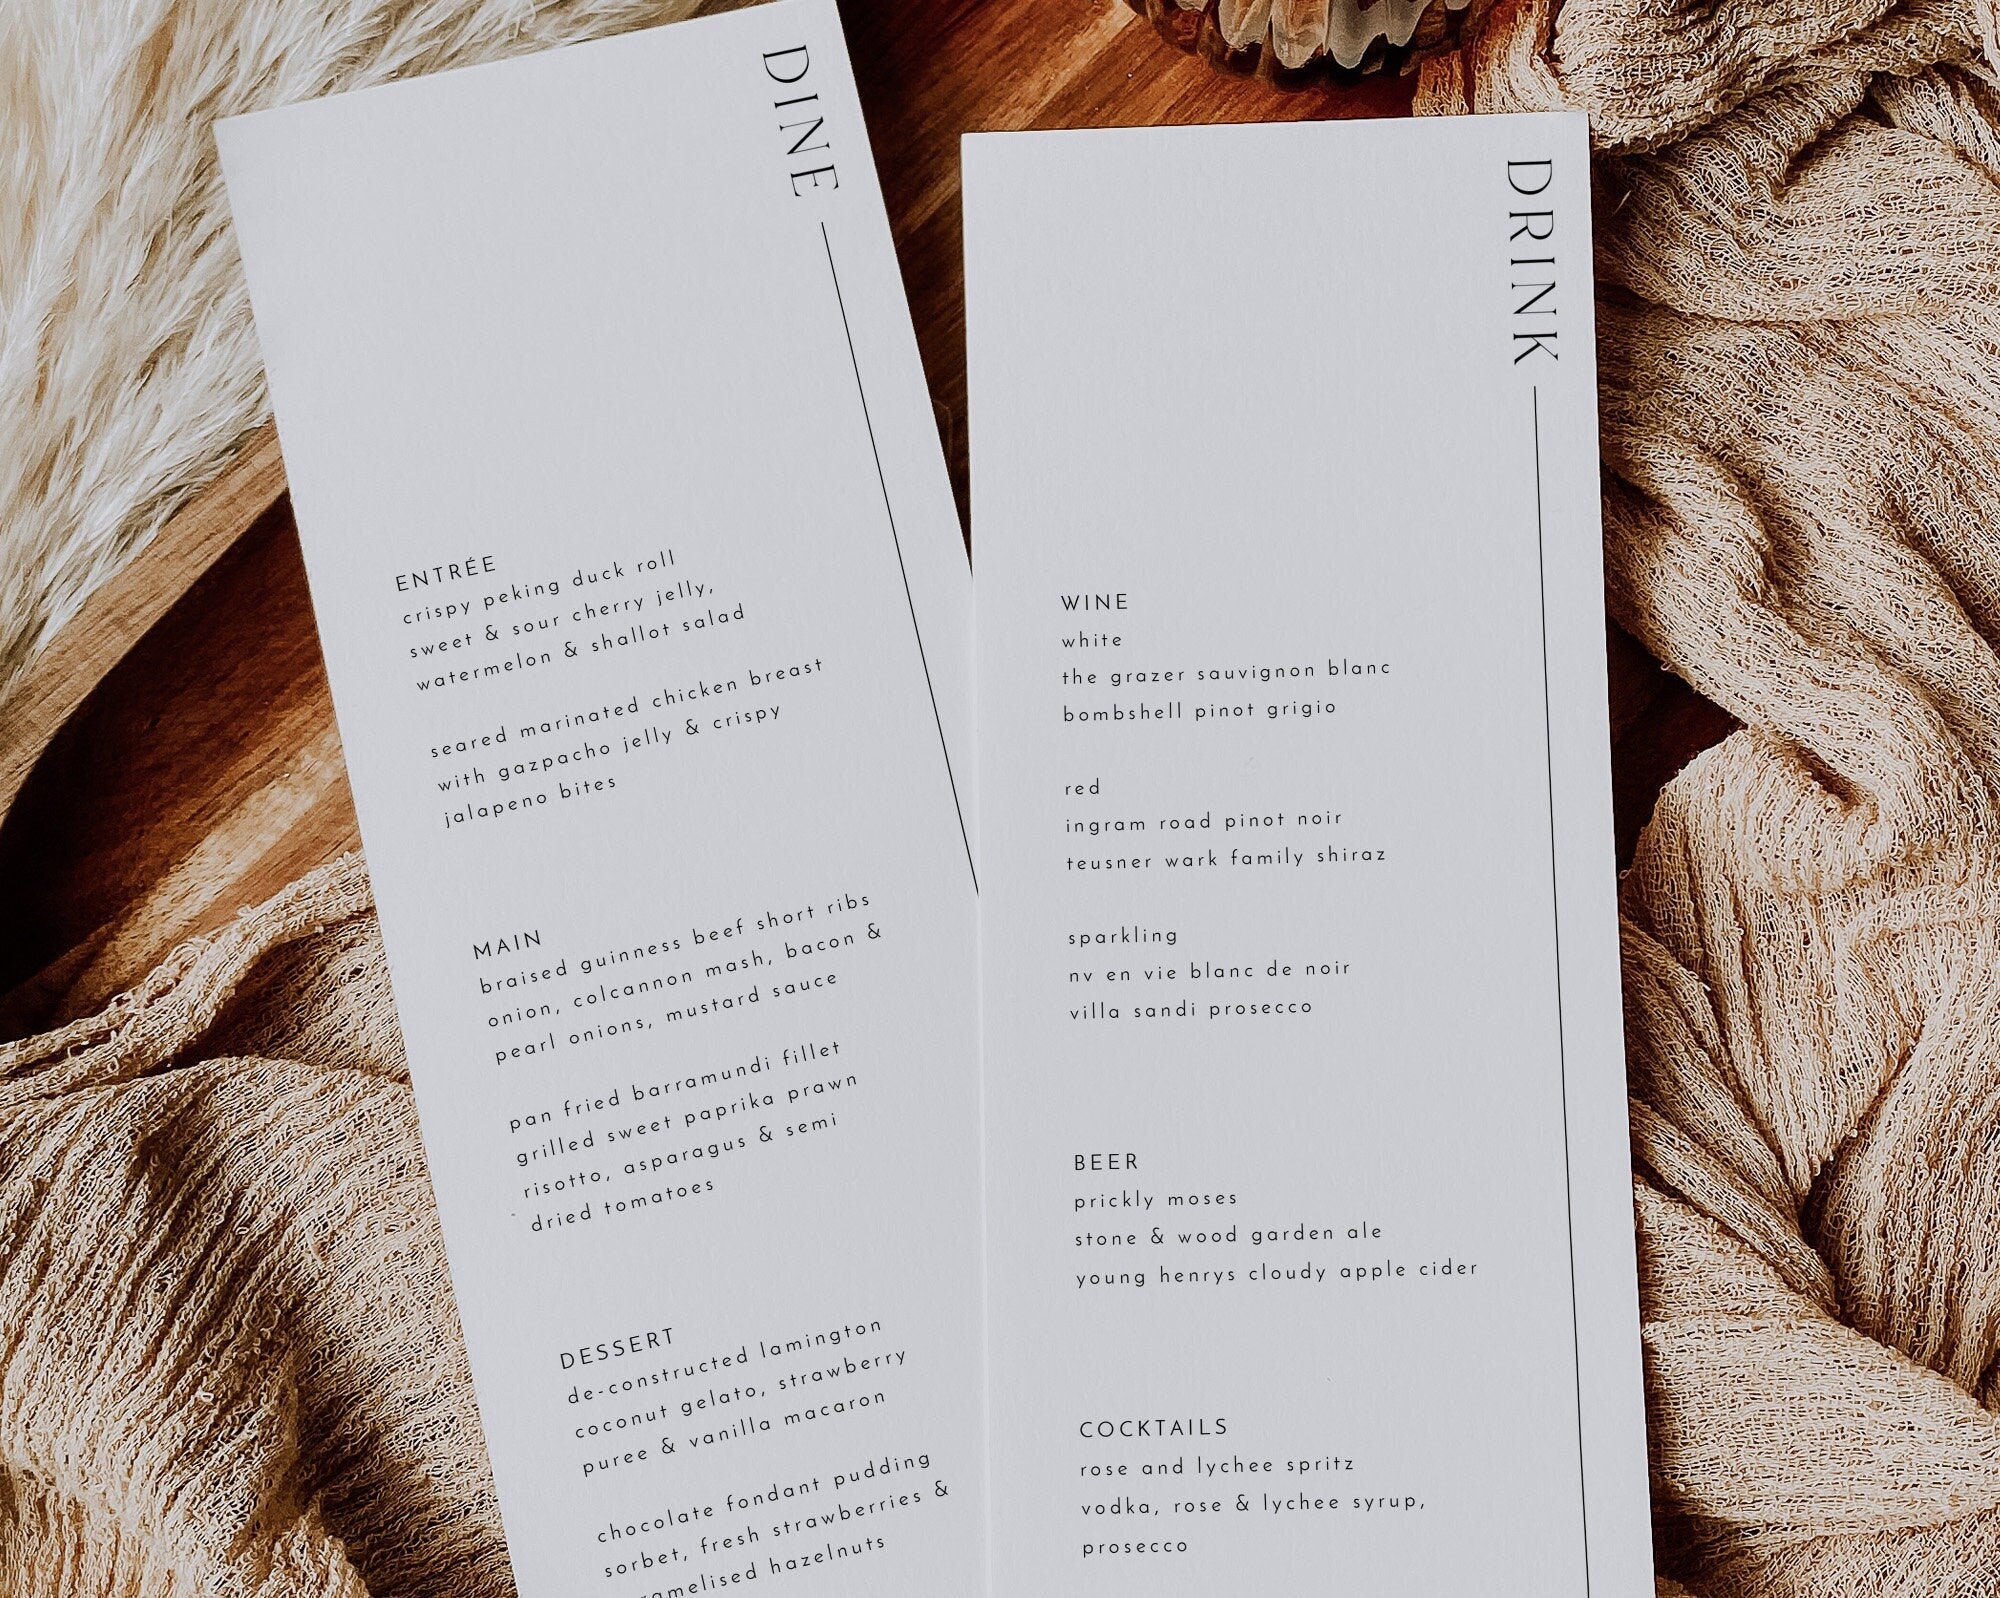 DINE
ENTRÉE
crispy peking duck roll
sweet & sour cherry jelly,
watermelon & shallot salad
seared marinated chicken breast
with gazpacho jelly & crispy
jalapeno bites
MAIN
braised guinness beef short ribs
onion, colcannon mash, bacon &
pearl onions, mustard sauce
pan fried barramundi fillet
grilled sweet paprika prawn
risotto, asparagus & semi
dried tomatoes
DESSERT
de-constructed lamington
coconut gelato, strawberry
puree & vanilla macaron
chocolate fondant pudding
sorbet, fresh strawberries &
hazelnuts
DRINK
WINE
white
the grazer sauvignon blanc
bombshell pinot grigio
red
ingram road pinot noir
teusner wark family shiraz
sparkling
nv en vie blanc de noir
villa sandi prosecco
BEER
prickly moses
stone & wood garden ale
young henrys cloudy apple cider
COCKTAILS
rose and lychee spritz
vodka, rose & lychee syrup,
prosecco